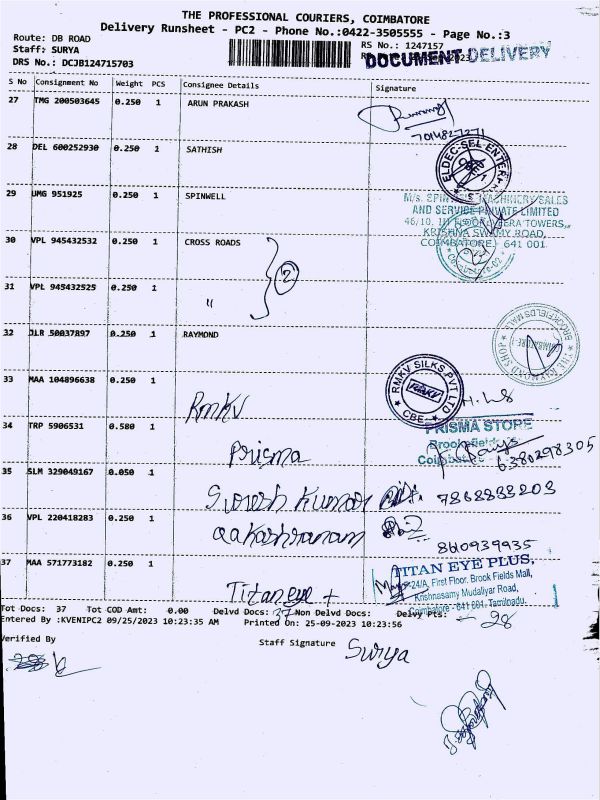 THE PROFESSIONAL COURIERS, COIMBATORE
Delivery Runsheet - PC2 - Phone No.:0422-3505555 - Page No.:3
Route: DB ROAD
RS No.: 1247157
Staff: SURYA
DOCUMENT DELIVERY
DRS No.: DCJB124715703
S No Consignment No Weight PCS Consignee Details Signature
27 TMG 200503645 0.250 1 ARUN PRAKASH
28 DEL 600252930 0.250 1 SATHISH
ELDEC-SEL-ENTER
29 UMG 951925 0.250 1 SPINWELL
M/s. SPINWELL MACHINERY SALES
AND SERVICE PRIVATE LIMITED
TOWERS,
KRISHNA SWAMY ROAD,
COIMBATORE - 641 001
30 VPL 945432532 0.250 1 CROSS ROADS
"2"
31 VPL 945432525 0.250 1 "
32 JLR 50037897 0.250 1 RAYMOND
BROOKFIELDS MALL
THE RAYMOND SHOP
33 MAA 104896638 0.250 1 RMKV
RMKV SILKS PVT LTD
RMKV
CBE
34 TRP 5906531 0.580 1 Prisma
PRISMA STORE
Brookefields
6380298305
35 SLM 329049167 0.050 1 Suresh Kumar 7868883203
36 VPL 220418283 0.250 1
8610939935
37 MAA 571773182 0.250 1 Titan eye +
TITAN EYE PLUS,
24/A, First Floor, Brook Fields Mall,
Krishnasamy Mudaliyar Road,
Coimbatore - 641 001. Tamilnadu.
Tot Docs: 37 Tot COD Amt: 0.00 Delvd Docs: 37 Non Delvd Docs: Delvy Pts: 28
Entered By :KVENIPC2 09/25/2023 10:23:35 AM Printed On: 25-09-2023 10:23:56
Verified By
Staff Signature Surya